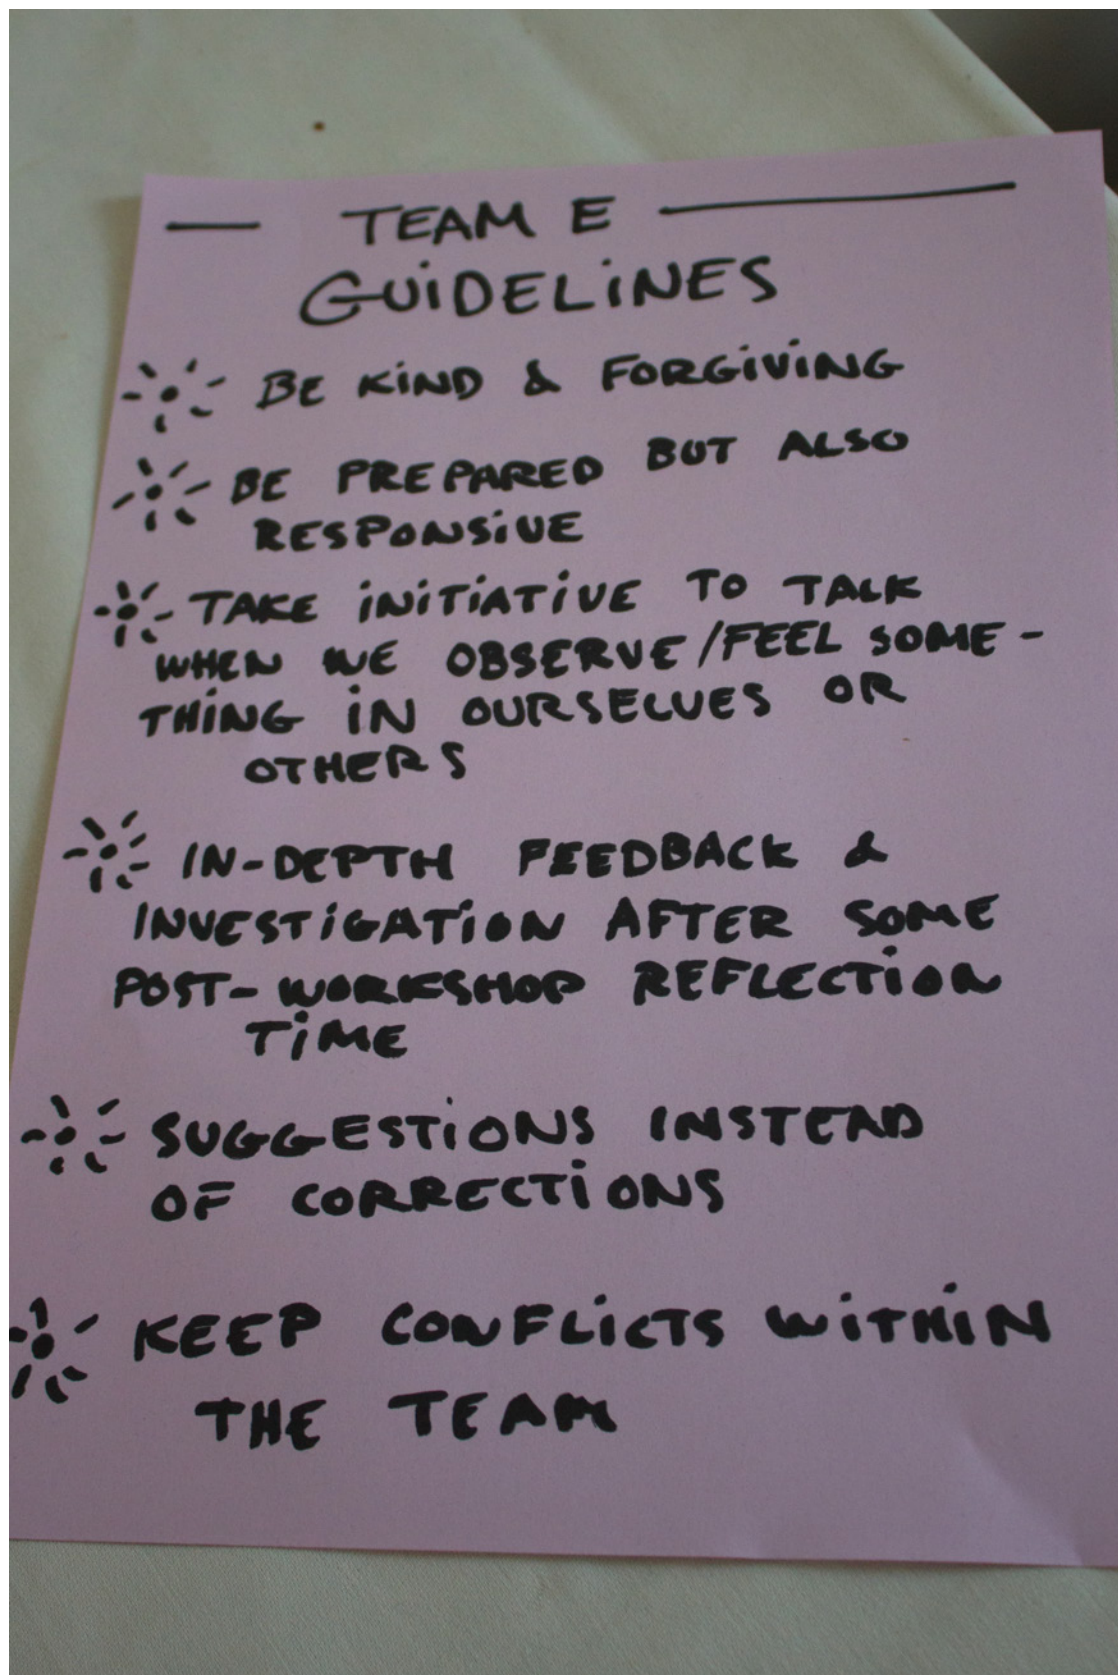 TEAM E
GUiDELiNES
BE KiND & FORGiViNG
BE PREPARED BUT ALSO
RESPONSiVE
TAKE iNiTiATiVE TO TALK
WHEN WE OBSERVE/FEEL SOME-
THiNG iN OURSELVES OR
OTHERS
IN-DEPTH FEEDBACK &
INVESTiGATiON AFTER SOME
POST-WORKSHOP REFLECTiON
TiME
SUGGESTiONS INSTEAD
OF CORRECTiONS
KEEP CONFLiCTS WiTHiN
THE TEAM